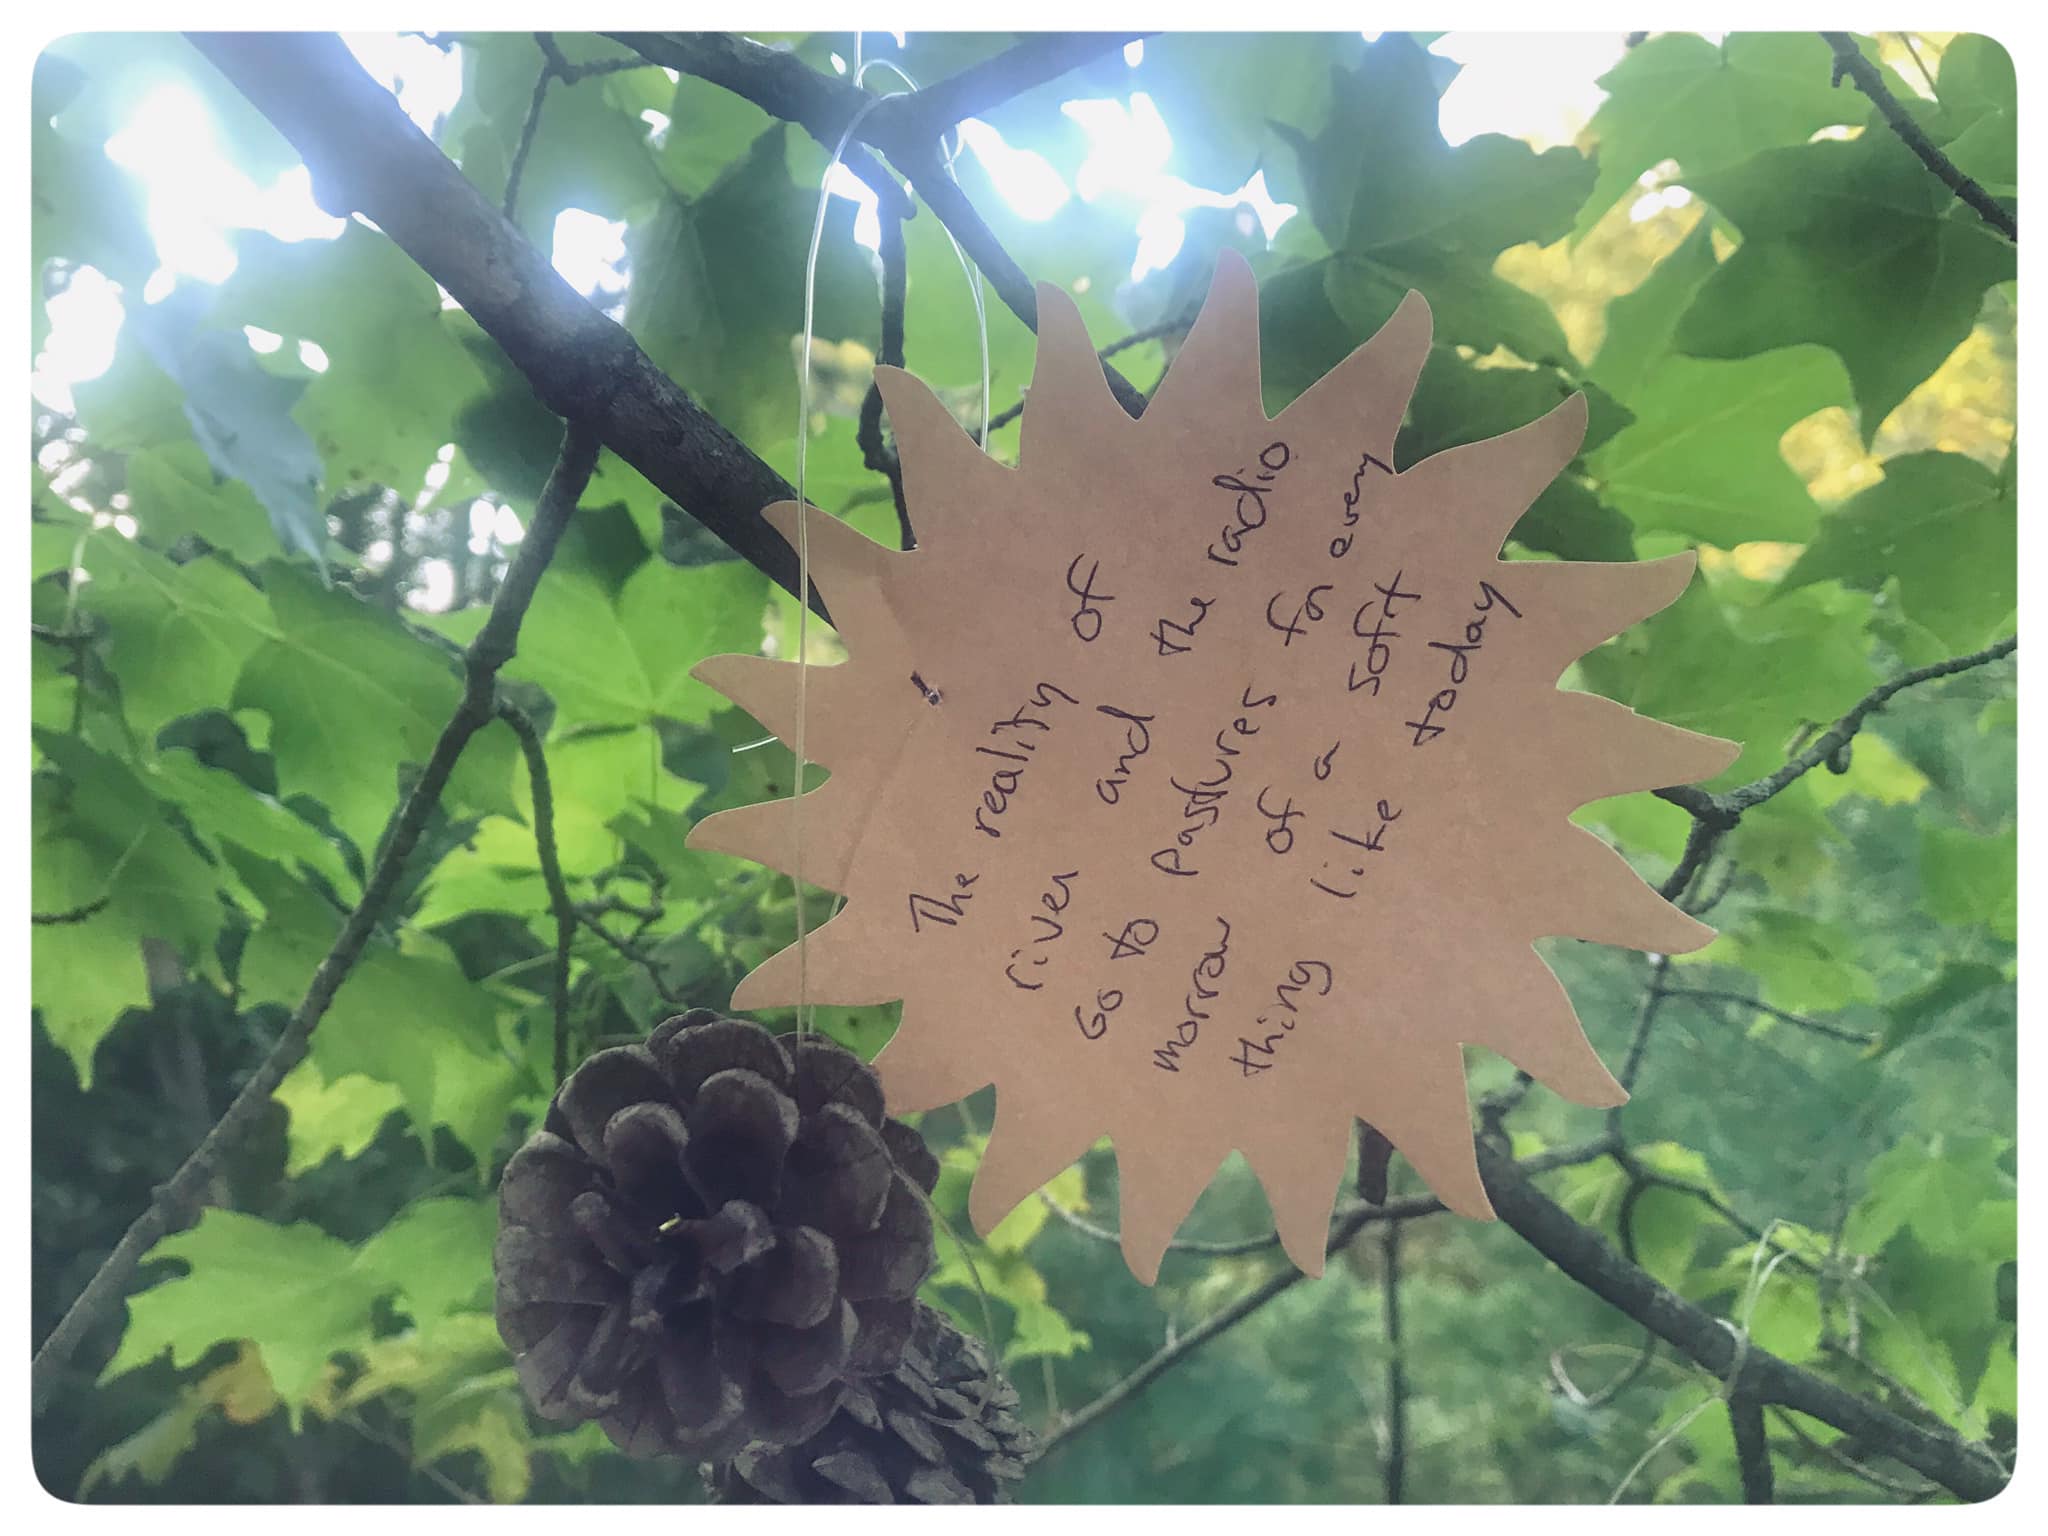 The reality of
river and the radio
Go to pastures for every
morrow of a soft
thing like today